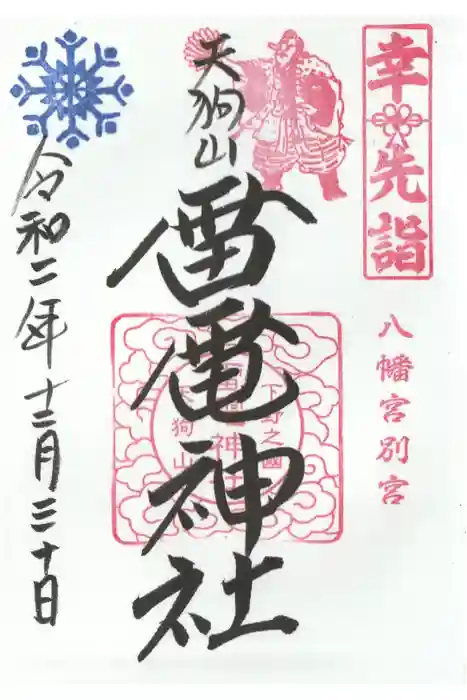 幸先詣
八幡宮別宮
天狗山
雷電神社
下野之國
天狗山
令和二年十二月三十日